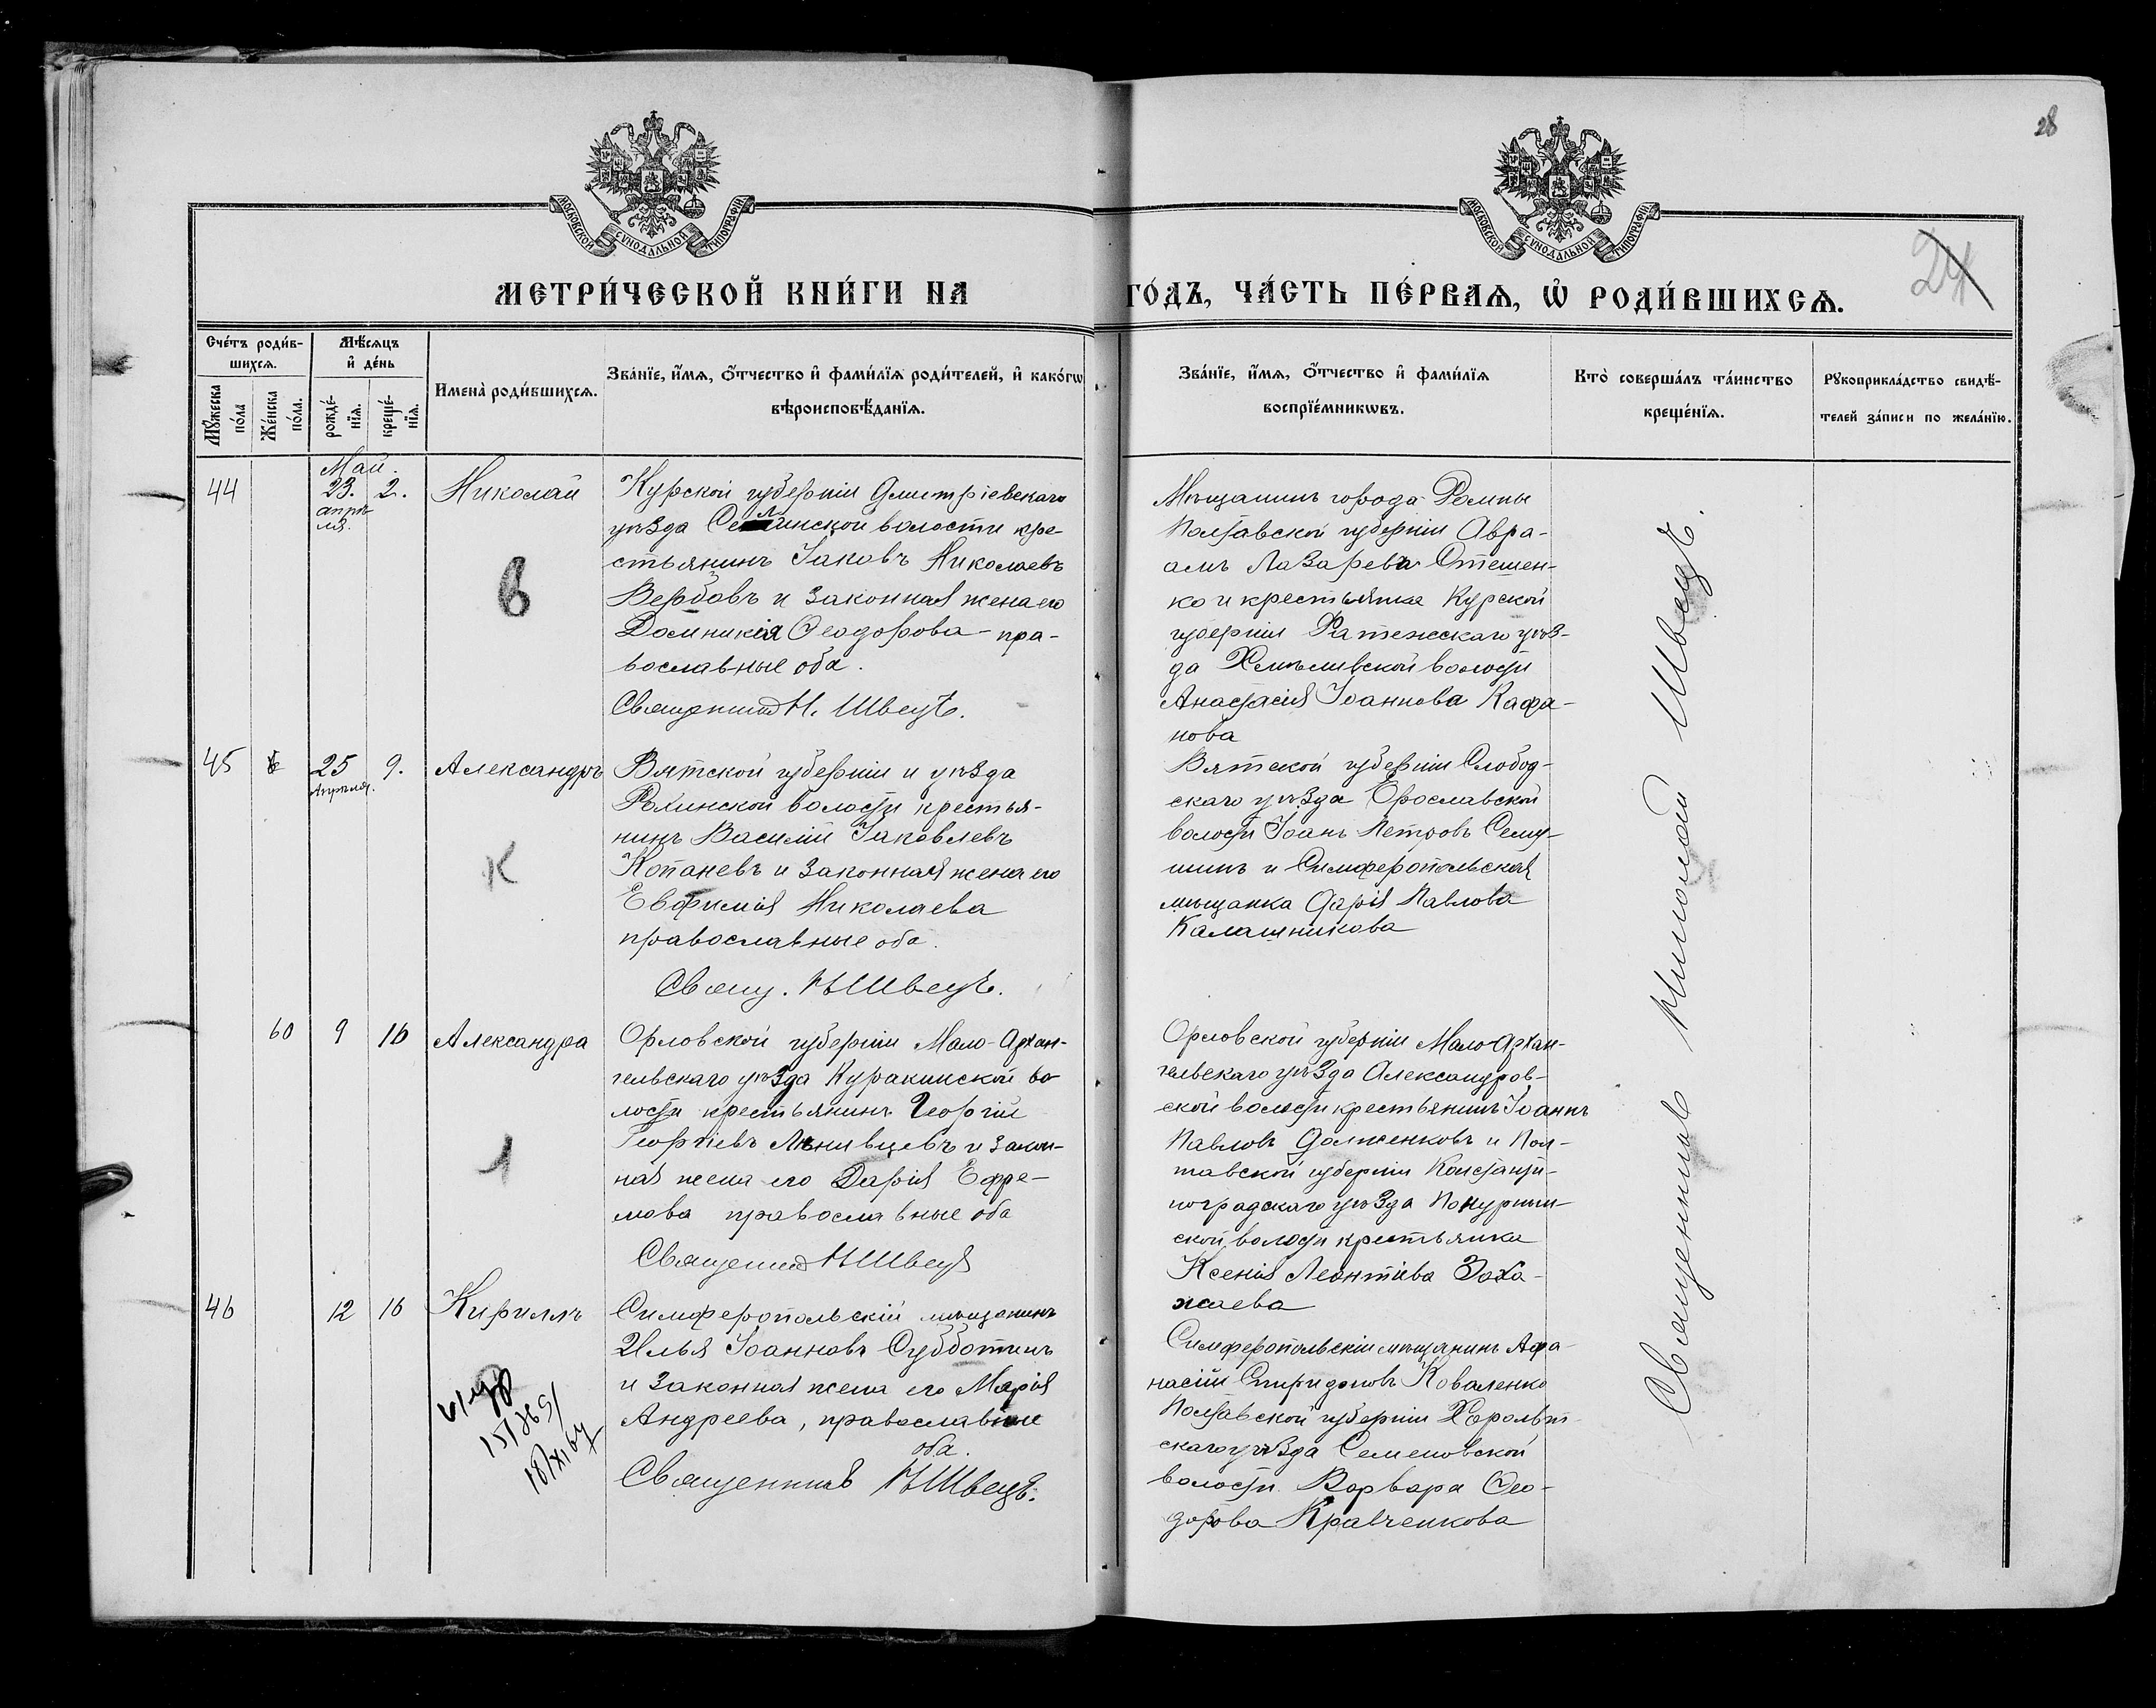 28
24
МОСКОВСКОЙ СѴНОДАЛЬНОЙ ТИПОГРАФІИ
МОСКОВСКОЙ СѴНОДАЛЬНОЙ ТИПОГРАФІИ
МЕТРИ́ЧЕСКОЙ КНИ́ГИ НА
ГО́ДЪ, ЧА́СТЬ ПЕ́РВАѦ, Ѡ҆ РОДИ́ВШИХСѦ.
Сче́тъ роди́в-
шихсѧ.
Мѣ́сѧцъ
и҆ де́нь
Мꙋ́жеска
по́ла
Же́нска
по́ла.
рожде́-
нїѧ.
креще́-
нїѧ.
Имена̀ роди́вшихсѧ.
Зва́нїе, и҆́мѧ, ѻ҆́тчество и҆ фами́лїѧ роди́телей, и҆ како́гѡ
вѣроисповѣ́данїѧ.
Зва́нїе, и҆́мѧ, ѻ҆́тчество и҆ фами́лїѧ
воспрїе́мникѡвъ.
Кто̀ соверша́лъ та́инство
креще́нїѧ.
Рꙋкоприкла́дство свидѣ́-
телей за́писи по жела́нїю.
Май.
44 23. 2. Николай
апрѣ-
ля.
Курской губерніи Дмитріевскаго
уѣзда волости кре-
стьянинъ Іаковъ Николаевъ
Вербовъ и законная жена его
Домникія Ѳеодорова - пра-
вославные оба.
Священник Н. Швецъ.
в
Мѣщанинъ города Ромны
Полтавской губерніи Авра-
амъ Лазаревъ Стешен-
ко и крестьянка Курской
губерніи Фатежскаго уѣз-
да волости
Анастасія Іоаннова Кафа-
нова
45 25 9. Александръ
Апрѣля.
Вятской губерніи и уѣзда
волости крестья-
нинъ Василій Іаковлевъ
Копаневъ и законная жена его
Евфимія Николаева
православные оба.
Свящ. Н Швецъ.
К
Вятской губерніи Слобод-
скаго уѣзда
волости Іоанъ Петровъ Сему-
шинъ и Симферопольская
мѣщанка Дарія Павлова
Калашникова
60 9 16 Александра
Орловской губерніи Мало-Архан-
гельскаго уѣзда Куракинской во-
лости крестьянинъ Георгій
Георгіевъ Лѣнивцевъ и закон-
ная жена его Дарія Ефре-
мова православные оба
Священник Н Швецъ
Л
Орловской губерніи Мало-Архан-
гельскаго уѣзда Александров-
ской волости крестьянинъ Іоаннъ
Павловъ Долженковъ и Пол-
тавской губерніи Константи-
ноградскаго уѣзда
ской волости крестьянка
Ксенія Леонтіева
46 12 16 Кириллъ
Симферопольскій мѣщанинъ
Илья Іоанновъ Субботинъ
и законная жена его Марія
Андреева, православные
оба.
Священникъ Н Швецъ.
18/XI 67
Симферопольскій мѣщанинъ Афа-
насій Спиридоновъ Коваленко
Полтавской губерніи
скаго уѣзда Семеновской
волости Варвара Ѳео-
дорова Кравченкова
Священникъ Николай Швецъ.